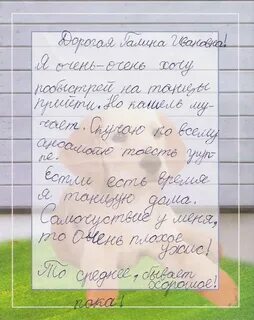 Дорогая Галина Ивановна!
Я очень-очень хочу
побыстрей на танцы
прийти. Но кашель му-
чает. Скучаю по всему
ансамблю тоесть груп-
пе.
Естли есть время
я танцую дома.
Самочуствие у меня,
то очень плохое
ужас!
То среднее, бывает
хорошое!
пока!